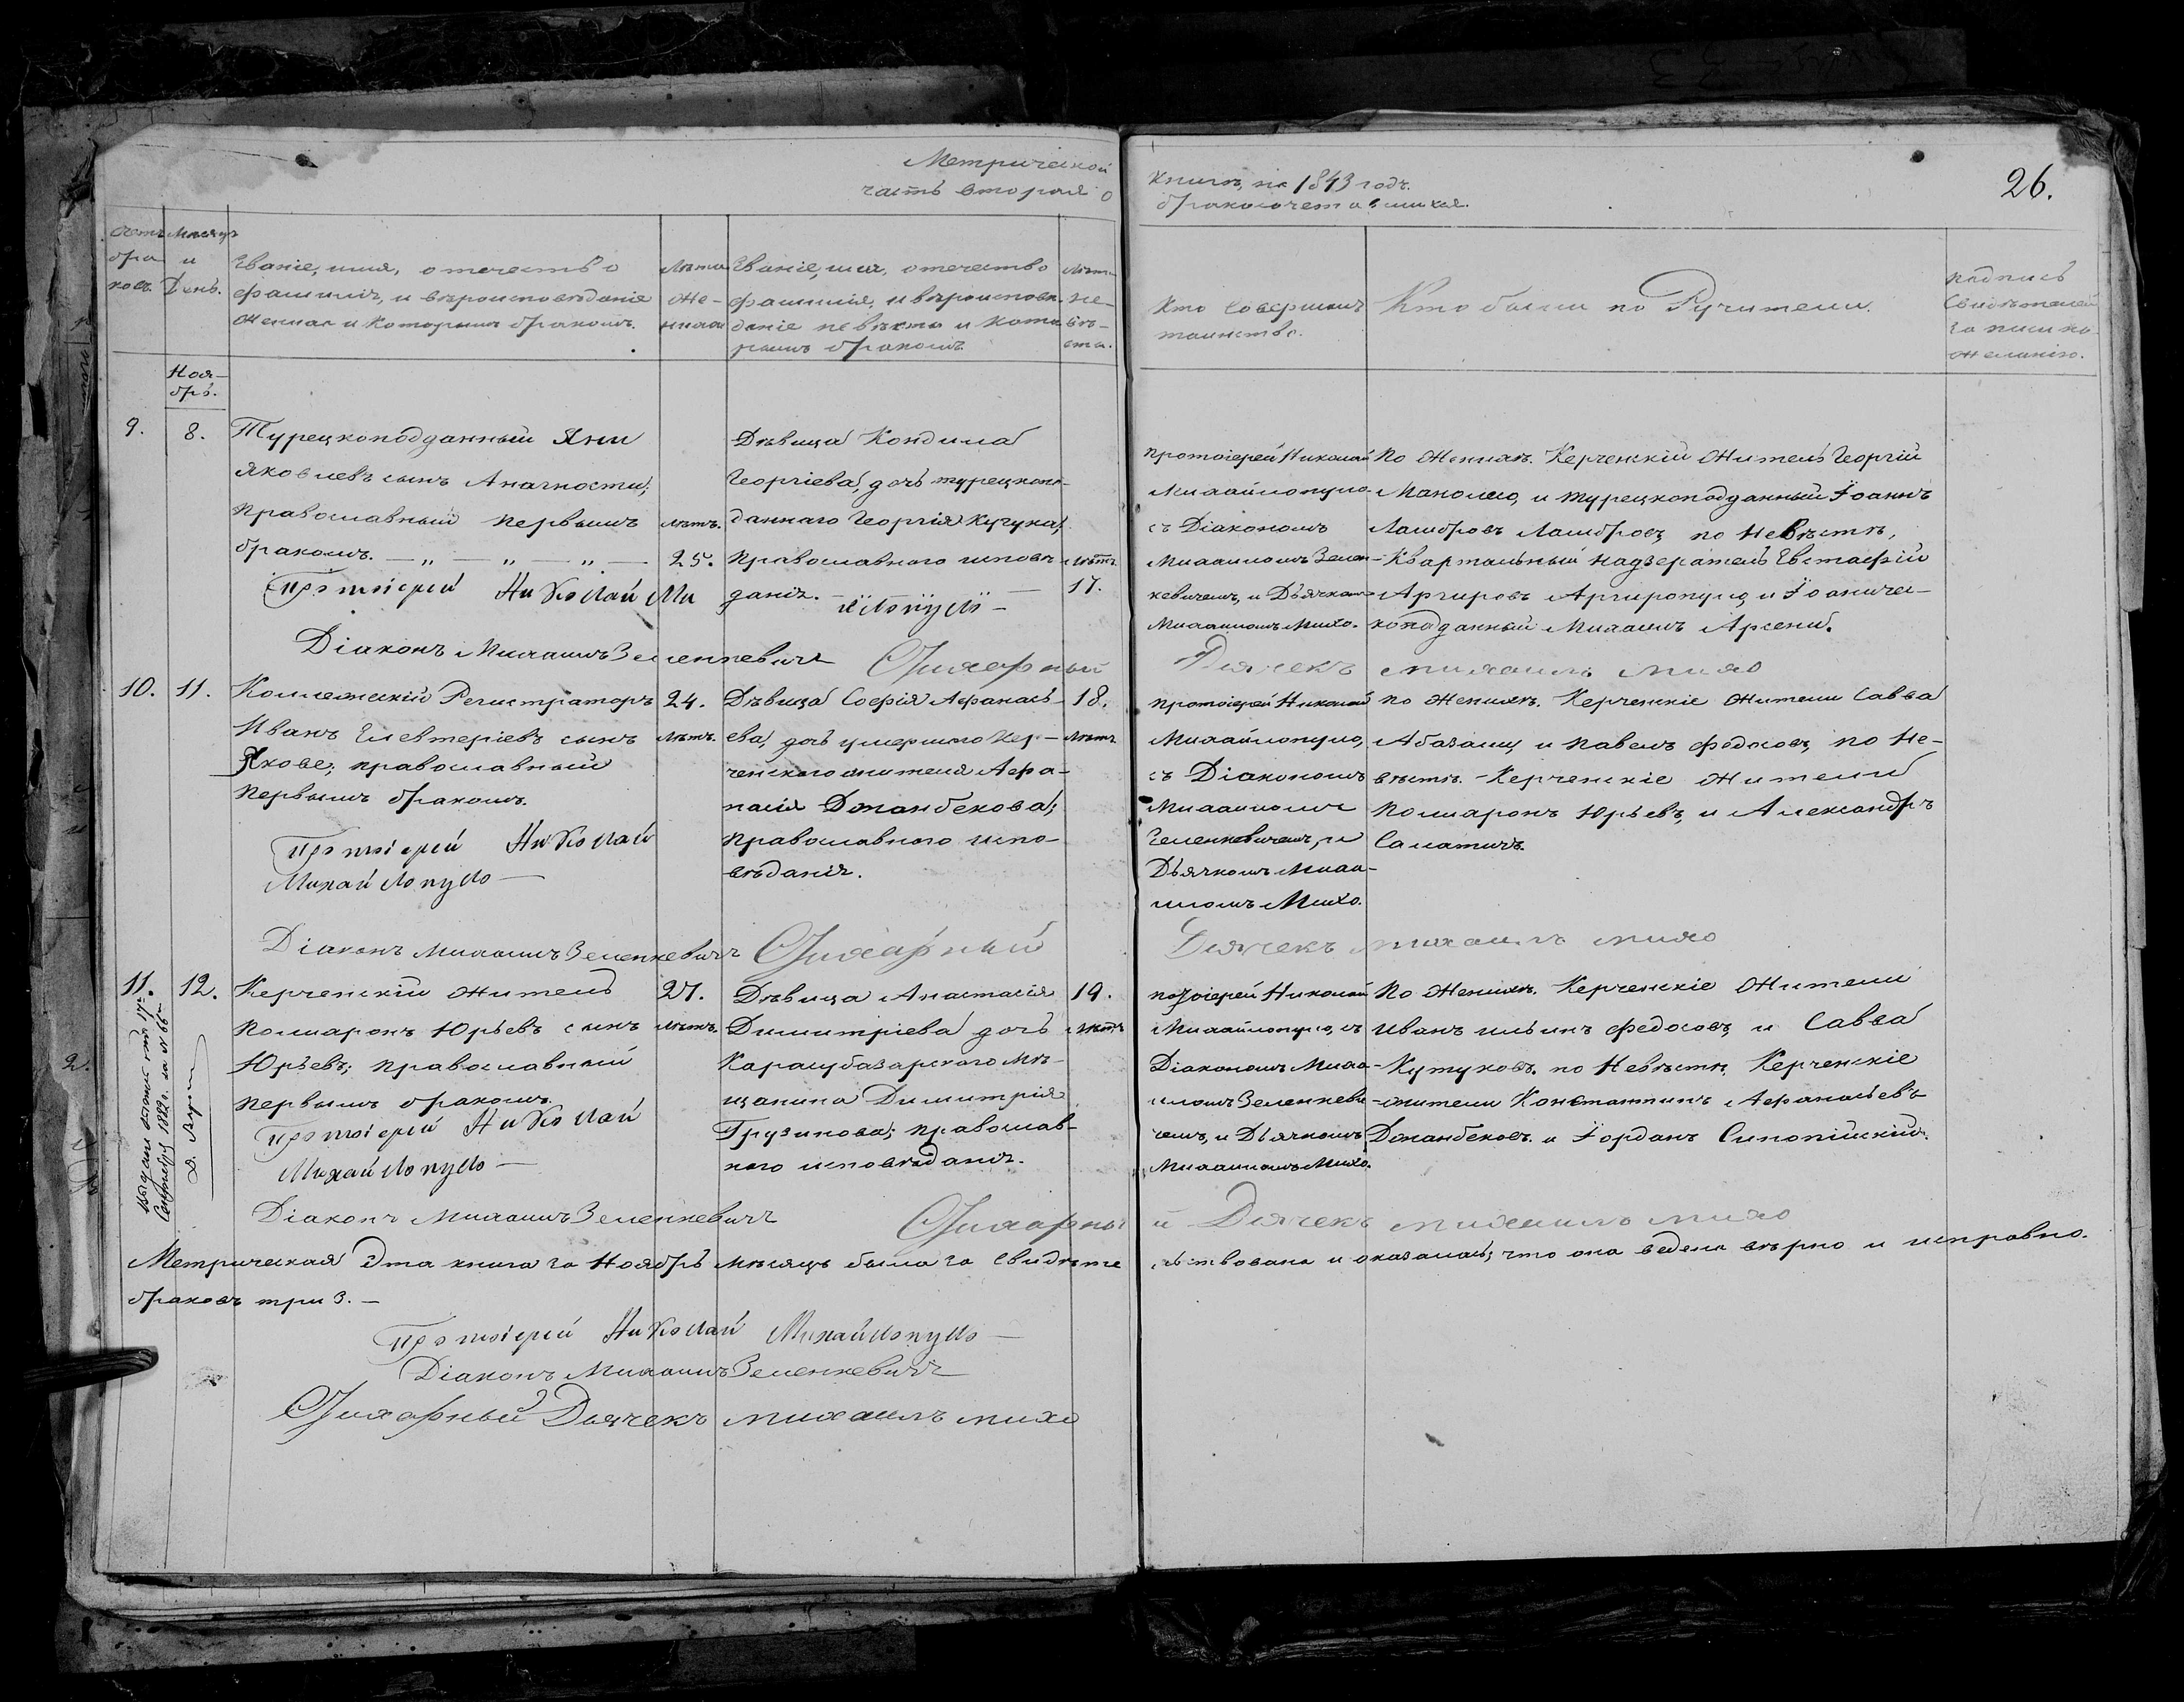 Метрической
часть вторая о
книги, на 1843 годъ.
бракосочетавшихся.
26.
Счетъ
бра
ковъ.
Месяцъ
и
День.
Званіе, имя, отечество
фамилія, и вѣроисповѣданіе
Жениха и которымъ бракомъ.
Лѣта
Же-
ниха
Званіе, имя, отечество
фамилія, и вѣроиспов-
даніе невѣсты и кото
рымъ бракомъ.
Лѣта
не-
вѣ-
сты.
Кто совершалъ
таинство.
Кто были по Ручители.
подпись
Свидѣтелей
записи по
желанію.
Ноя-
брь.
9.
8.
Турецкоподданный Яни
Яковлевъ сынъ Анагности;
Православный первымъ
бракомъ. — „ — „ — „ —
лѣтъ.
25.
Дѣвица Кондила
Георгіева, дочь турецкопо-
даннаго Георгія Кучука;
православного исповѣ-
данія. —
лѣтъ
17.
Протоіерей Николай
Михайлопуло.
съ Діакономъ
Михаиломъ Зелен-
кевичемъ, и Дьячкомъ
Михаиломъ Михо.
По Женихѣ. Керченскій Житель Георгій
Маноли, и турецкоподданный Іоаннъ
Ламбровъ Ламбровъ, по Невѣстѣ,
Квартальный надзератель Евстафій
Аргировъ Аргиропуло, и Іоаничес-
коподданный Михаилъ Арсени.
Протоіерей Николай Ми
хайлопуло —
Діаконъ Михаилъ Зеленкевичъ Стихарный
Дьячекъ михаилъ михо
10.
11.
Коллежскій Регистраторъ
Иванъ Елевтеріевъ сынъ
Якове; православный
первымъ бракомъ.
24.
лѣтъ.
Дѣвица Софія Афанась-
ева, дочь умершаго Кер-
ченского жителя Афа-
насія Джанбекова;
православного испо-
вѣданія.
18.
лѣтъ
Протоіерей Николай
Михайлопуло,
съ Діакономъ
Михаиломъ
Зеленкевичемъ, и
Дьячкомъ Миха-
иломъ Михо.
по Женихѣ. Керченскіе Жители Савва
Абазалы и Павелъ Федосовъ, по Не-
вѣстѣ. - Керченскіе Жители
Полихронъ Юрьевъ, и Александръ
Саматичъ.
Протоіерей Николай
Михайлопуло —
Діаконъ Михаилъ Зеленкевичъ Стихарный
Дьячекъ михаилъ михо
11.
12.
Керченскій Житель
Полихронъ Юрьевъ сынъ
Юрьевъ; православный
первымъ бракомъ.
27.
лѣтъ.
Дѣвица Анастасія
Димитріева дочь
Карасубазарского мѣ-
щанина Димитрія
Грузинова; православ-
ного исповѣданія.
19.
лѣтъ
Протоіерей Николай
Михайлопуло, съ
Діакономъ Миха-
иломъ Зеленкеви-
чемъ, и Дьячкомъ
Михаиломъ Михо.
По Женихѣ. Керченскіе Жители
Иванъ Ильинъ Федосовъ, и Савва
Кутуковъ. по Невѣстѣ. Керченскіе
жители Константинъ Афанасьевъ
Джанбековъ. и Іорданъ Синопійскій.
Протоіерей Николай
Михайлопуло —
Діаконъ Михаилъ Зеленкевичъ Стихарны
й Дьячекъ михаилъ михо
Метрическая эта книга за Ноябрь мѣсяцъ была за свидѣте
льствована и оказалась; что она ведена вѣрно и исправно.
браковъ три 3. —
Протоіерей Николай Михайлопуло —
Діаконъ Михаилъ Зеленкевичъ
Стихарный Дьячекъ михаилъ михо